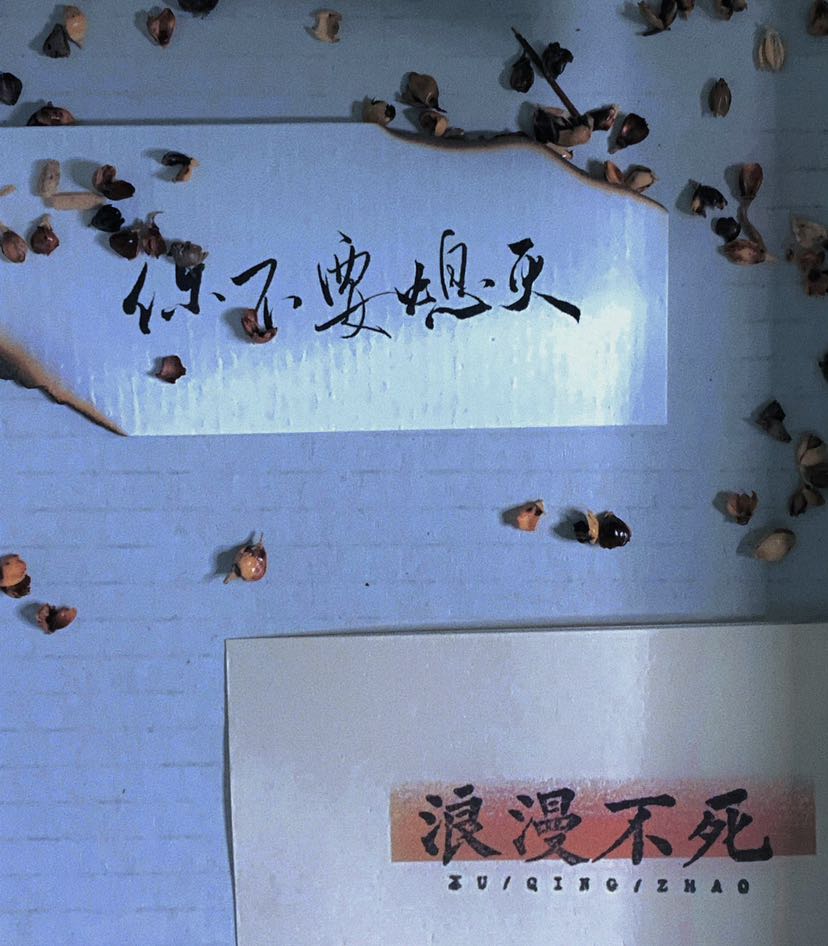 你不要熄灭
浪漫不死
XU/QING/ZHAO